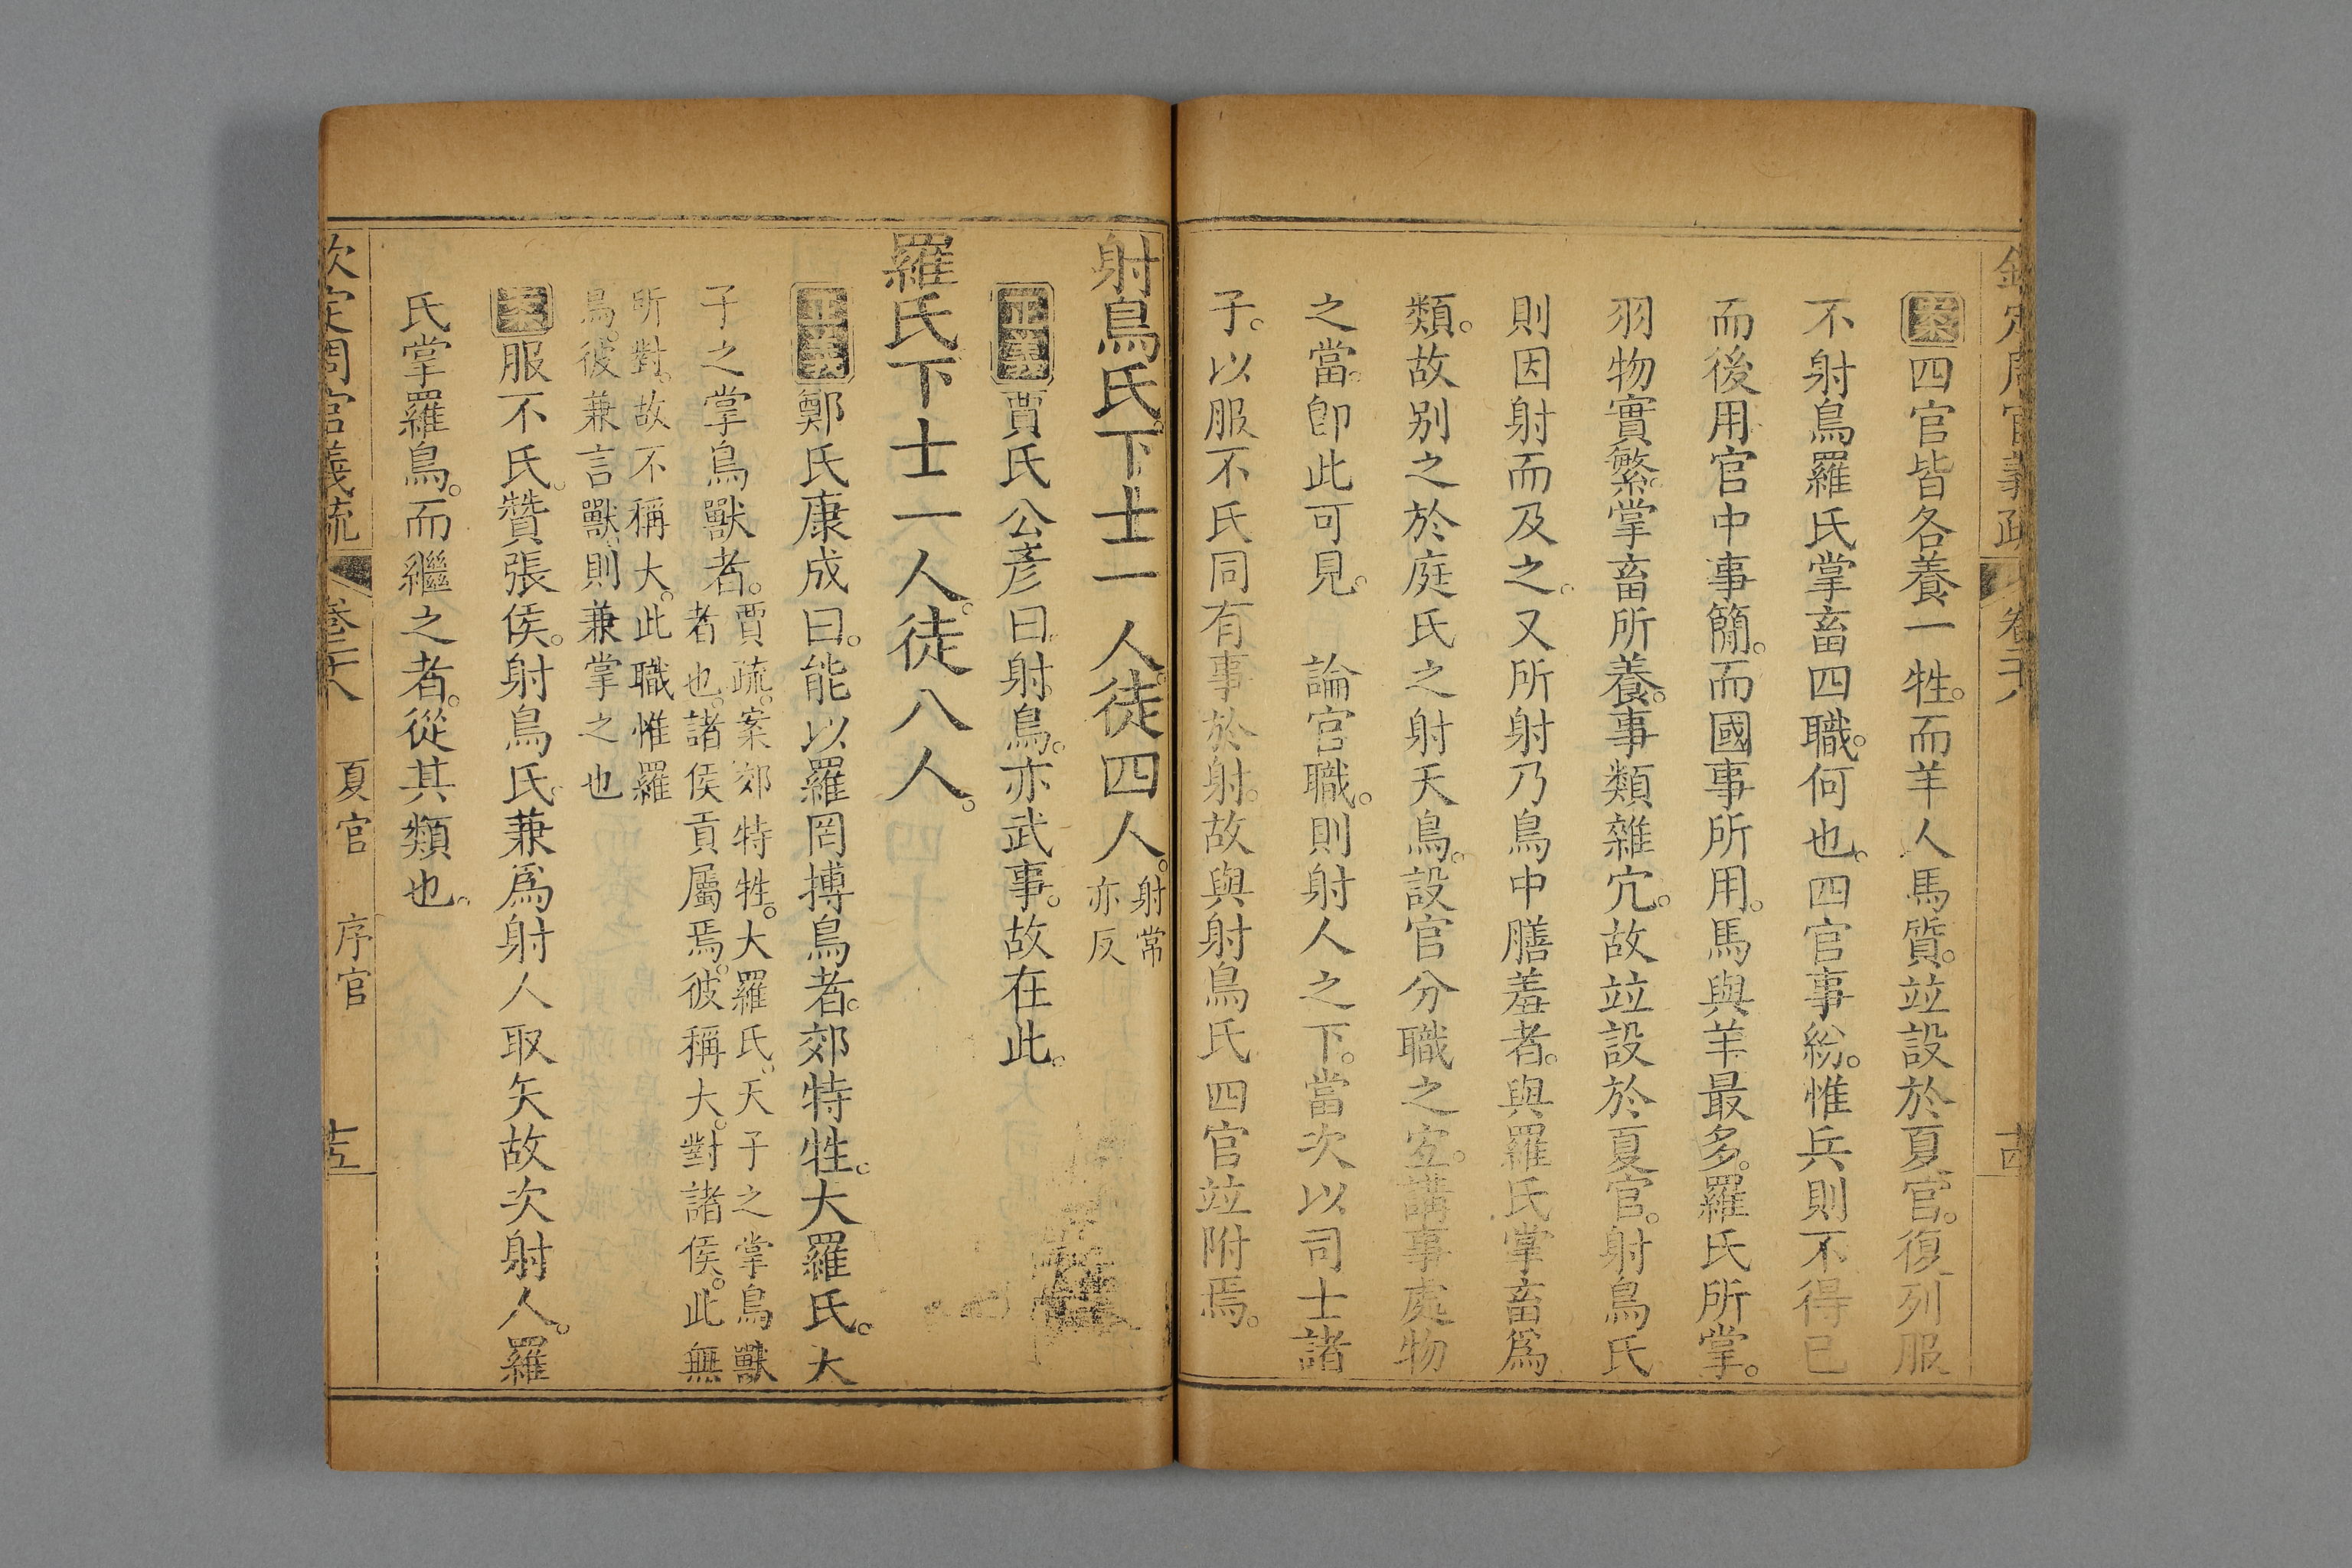 欽定周官義疏 卷二十八 十四
案四官皆各養一牲。而羊人馬質。竝設於夏官。復列服
不射鳥羅氏掌畜四職。何也。四官事紛。惟兵則不得已
而後用官中事簡。而國事所用。馬與羊最多。羅氏所掌。
羽物實繁。掌畜所養。事類雜宂。故竝設於夏官。射鳥氏
則因射而及之。又所射乃鳥中膳羞者。與羅氏掌畜爲
類。故别之於庭氏之射夭鳥。設官分職之宐。講事處物
之當。卽此可見。 論官職。則射人之下。當次以司士諸
子。以服不氏同有事於射。故與射鳥氏四官竝附焉。
射鳥氏。下士一人。徒四人。射常
亦反
正義賈氏公彦曰。射鳥。亦武事。故在此。
羅氏下士一人。徒八人。
正義鄭氏康成曰。能以羅罔搏鳥者。郊特牲。大羅氏。天
子之掌鳥獸者。賈疏。案郊特牲。大羅氏。天子之掌鳥獸
者也。諸侯貢屬焉。彼稱大。對諸侯。此無
所對。故不稱大。此職惟羅
鳥。彼兼言獸。則兼掌之也
案服不氏。贊張侯。射鳥氏。兼爲射人取矢故次射人。羅
氏掌羅鳥。而繼之者。從其類也。
欽定周官義疏 卷二十八 夏官 序官 十五